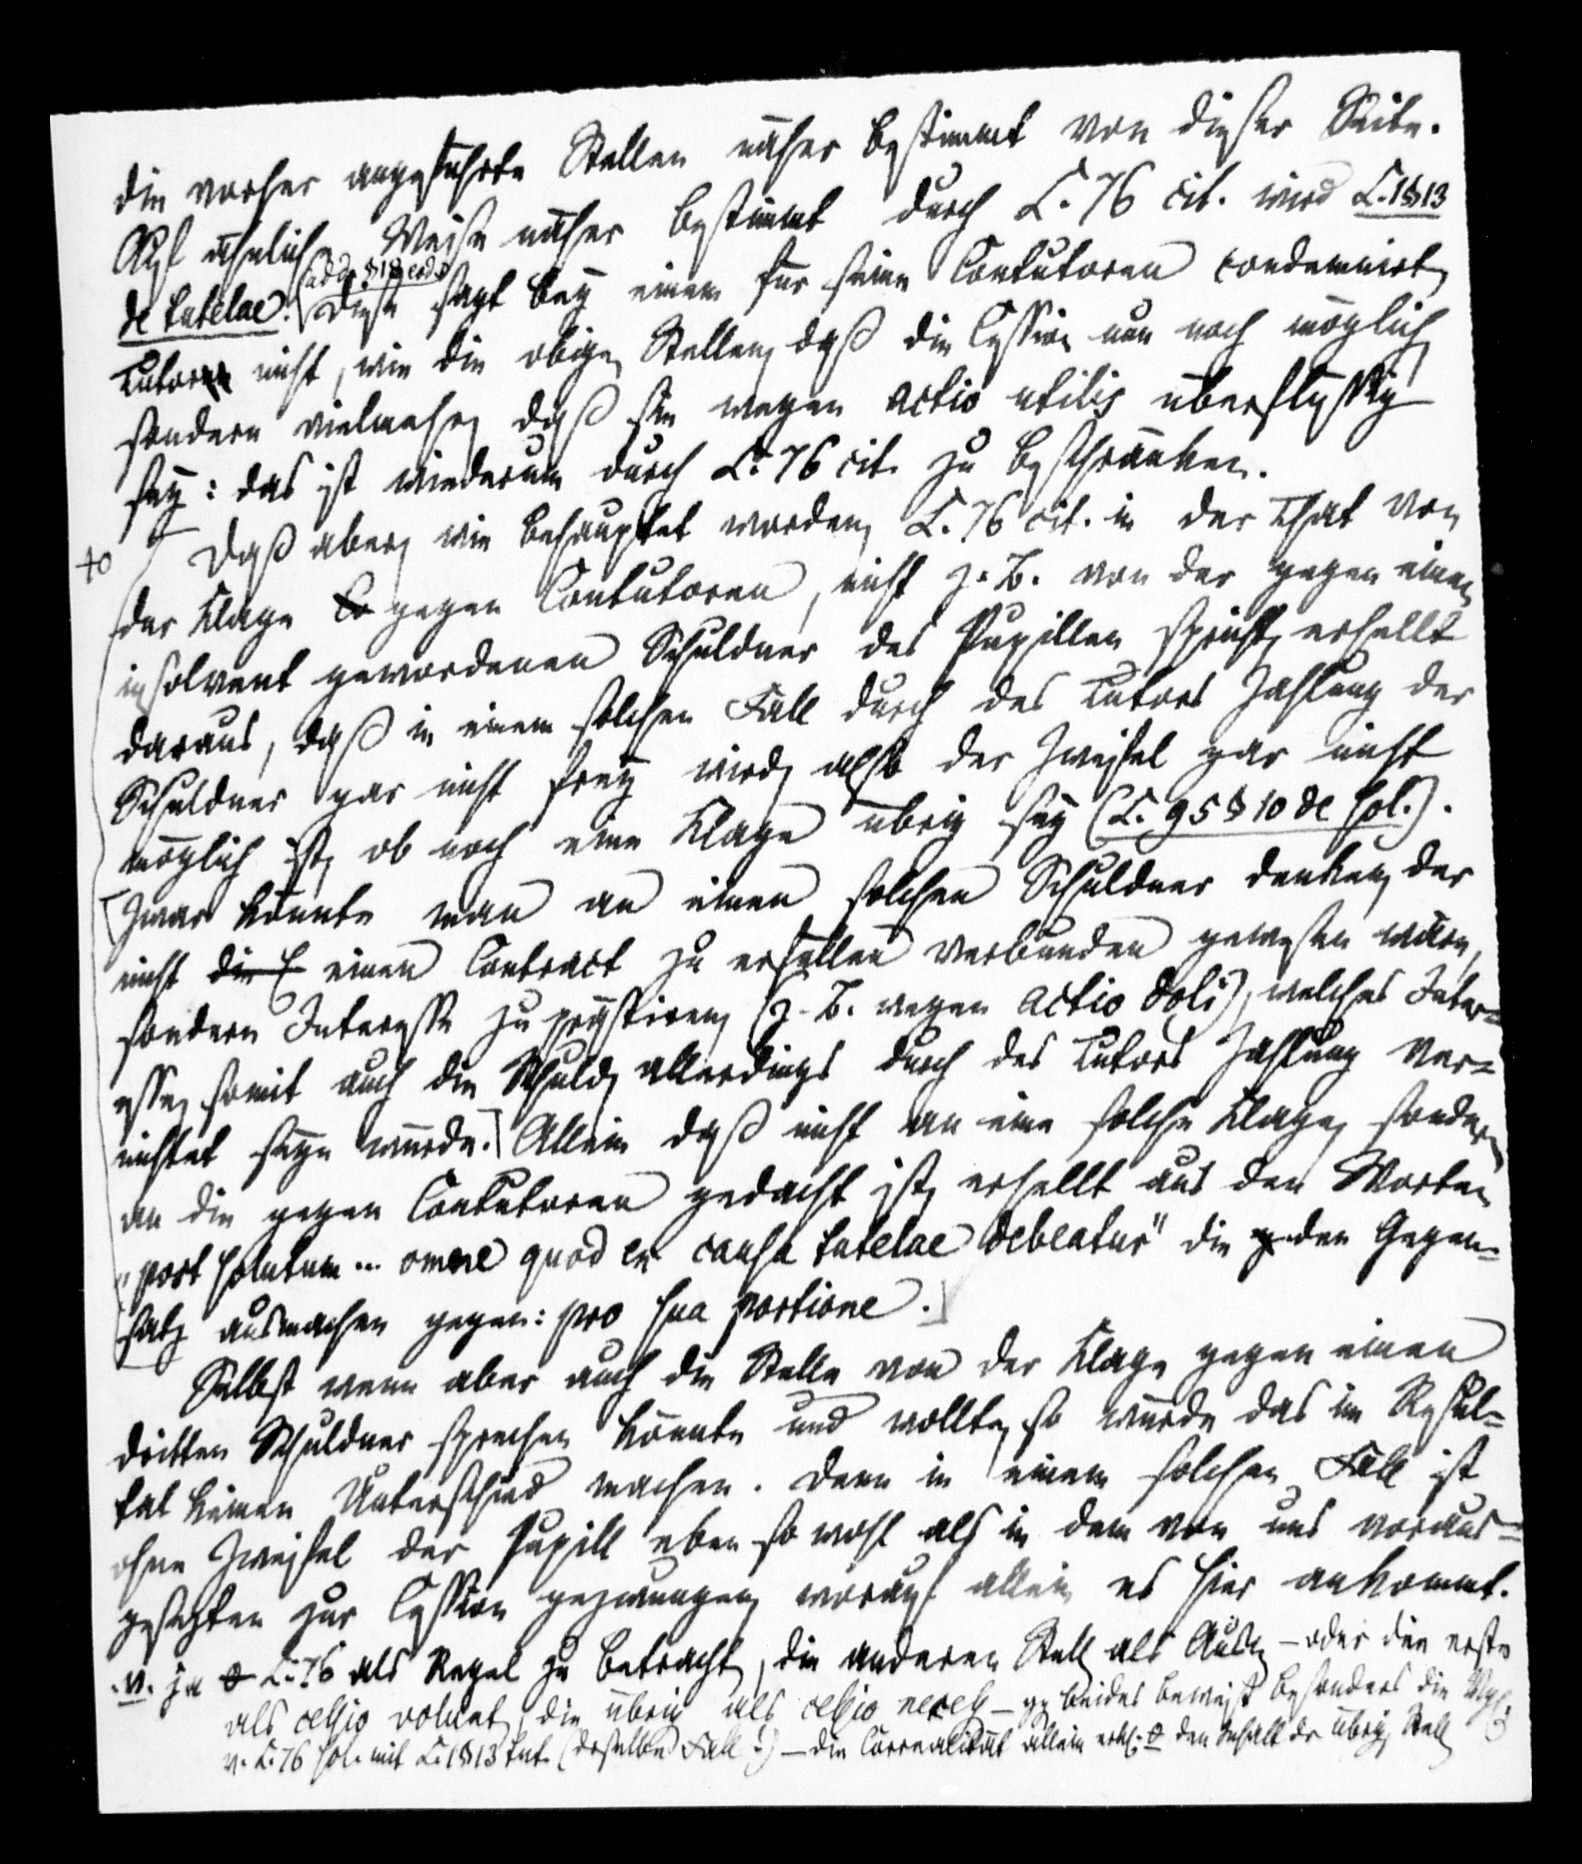 die vorher angeführte Stellen näher bestimmt von dieser Seite.
Auf ähnliche Weise näher bestimmt durch L. 76 cit. wird L. 1 § 13
(add. § 18 eod.)
de tutelae. Diese sagt bey einem für seine Contutoren condemnirten
Tutor nicht, wie die obigen Stellen, daß die Cession nun noch möglich,
sondern vielmehr, daß sie wegen actio utilis überflüssig
sey: das ist wiederum durch L. 76 cit. zu beschränken.
Daß aber, wie behauptet worden, L. 76 cit. in der That von
der Klage Co gegen Contutoren, nicht z. B. von der gegen einen
insolvent gewordenen Schuldner des Pupillen spricht, erhellt
daraus, daß in einem solchen Fall durch des Tutors Zahlung der
Schuldner gar nicht frey wird, also der Zweifel gar nicht
möglich ist, ob noch eine Klage übrig sey (L. 95 § 10 de sol.).
[Zwar könnte man an einen solchen Schuldner denken, der
nicht die E einen Contract zu erfüllen verbunden gewesen wäre,
sondern Interesse zu prästiren, (z. B. wegen actio doli), welches Inter-
esse, somit auch die Schuld, allerdings durch des Tutors Zahlung ver-
nichtet seyn würde.] Allein daß nicht an eine solche Klage, sondern
an die gegen Contutoren gedacht ist, erhellt aus den Worten
"post solutum ... omne quod ex causa tutelae debeatur" die g den Gegen-
satz ausmachen gegen: pro sua portione.]
Selbst wenn aber auch die Stelle von der Klage gegen einen
dritten Schuldner sprechen könnte und wollte, so würde das im Resul-
tat keinen Unterschied machen. Denn in einem solchen Fall ist
ohne Zweifel der Pupill eben so wohl als in dem von uns voraus-
gesetzten zur Cession gezwungen, worauf allein es hier ankommt.
L. 76 als Regel zu betracht, die anderen Stell als Ausn – oder die erste
als cessio volunt, die übrig als cessio necess – gg beides beweist besonders die Vgl.
v. L. 76 sol. mit L. 1 § 13 tut. (derselbe Fall!) – die Correalität allein erkl. den Inhalt dr übrig Stell